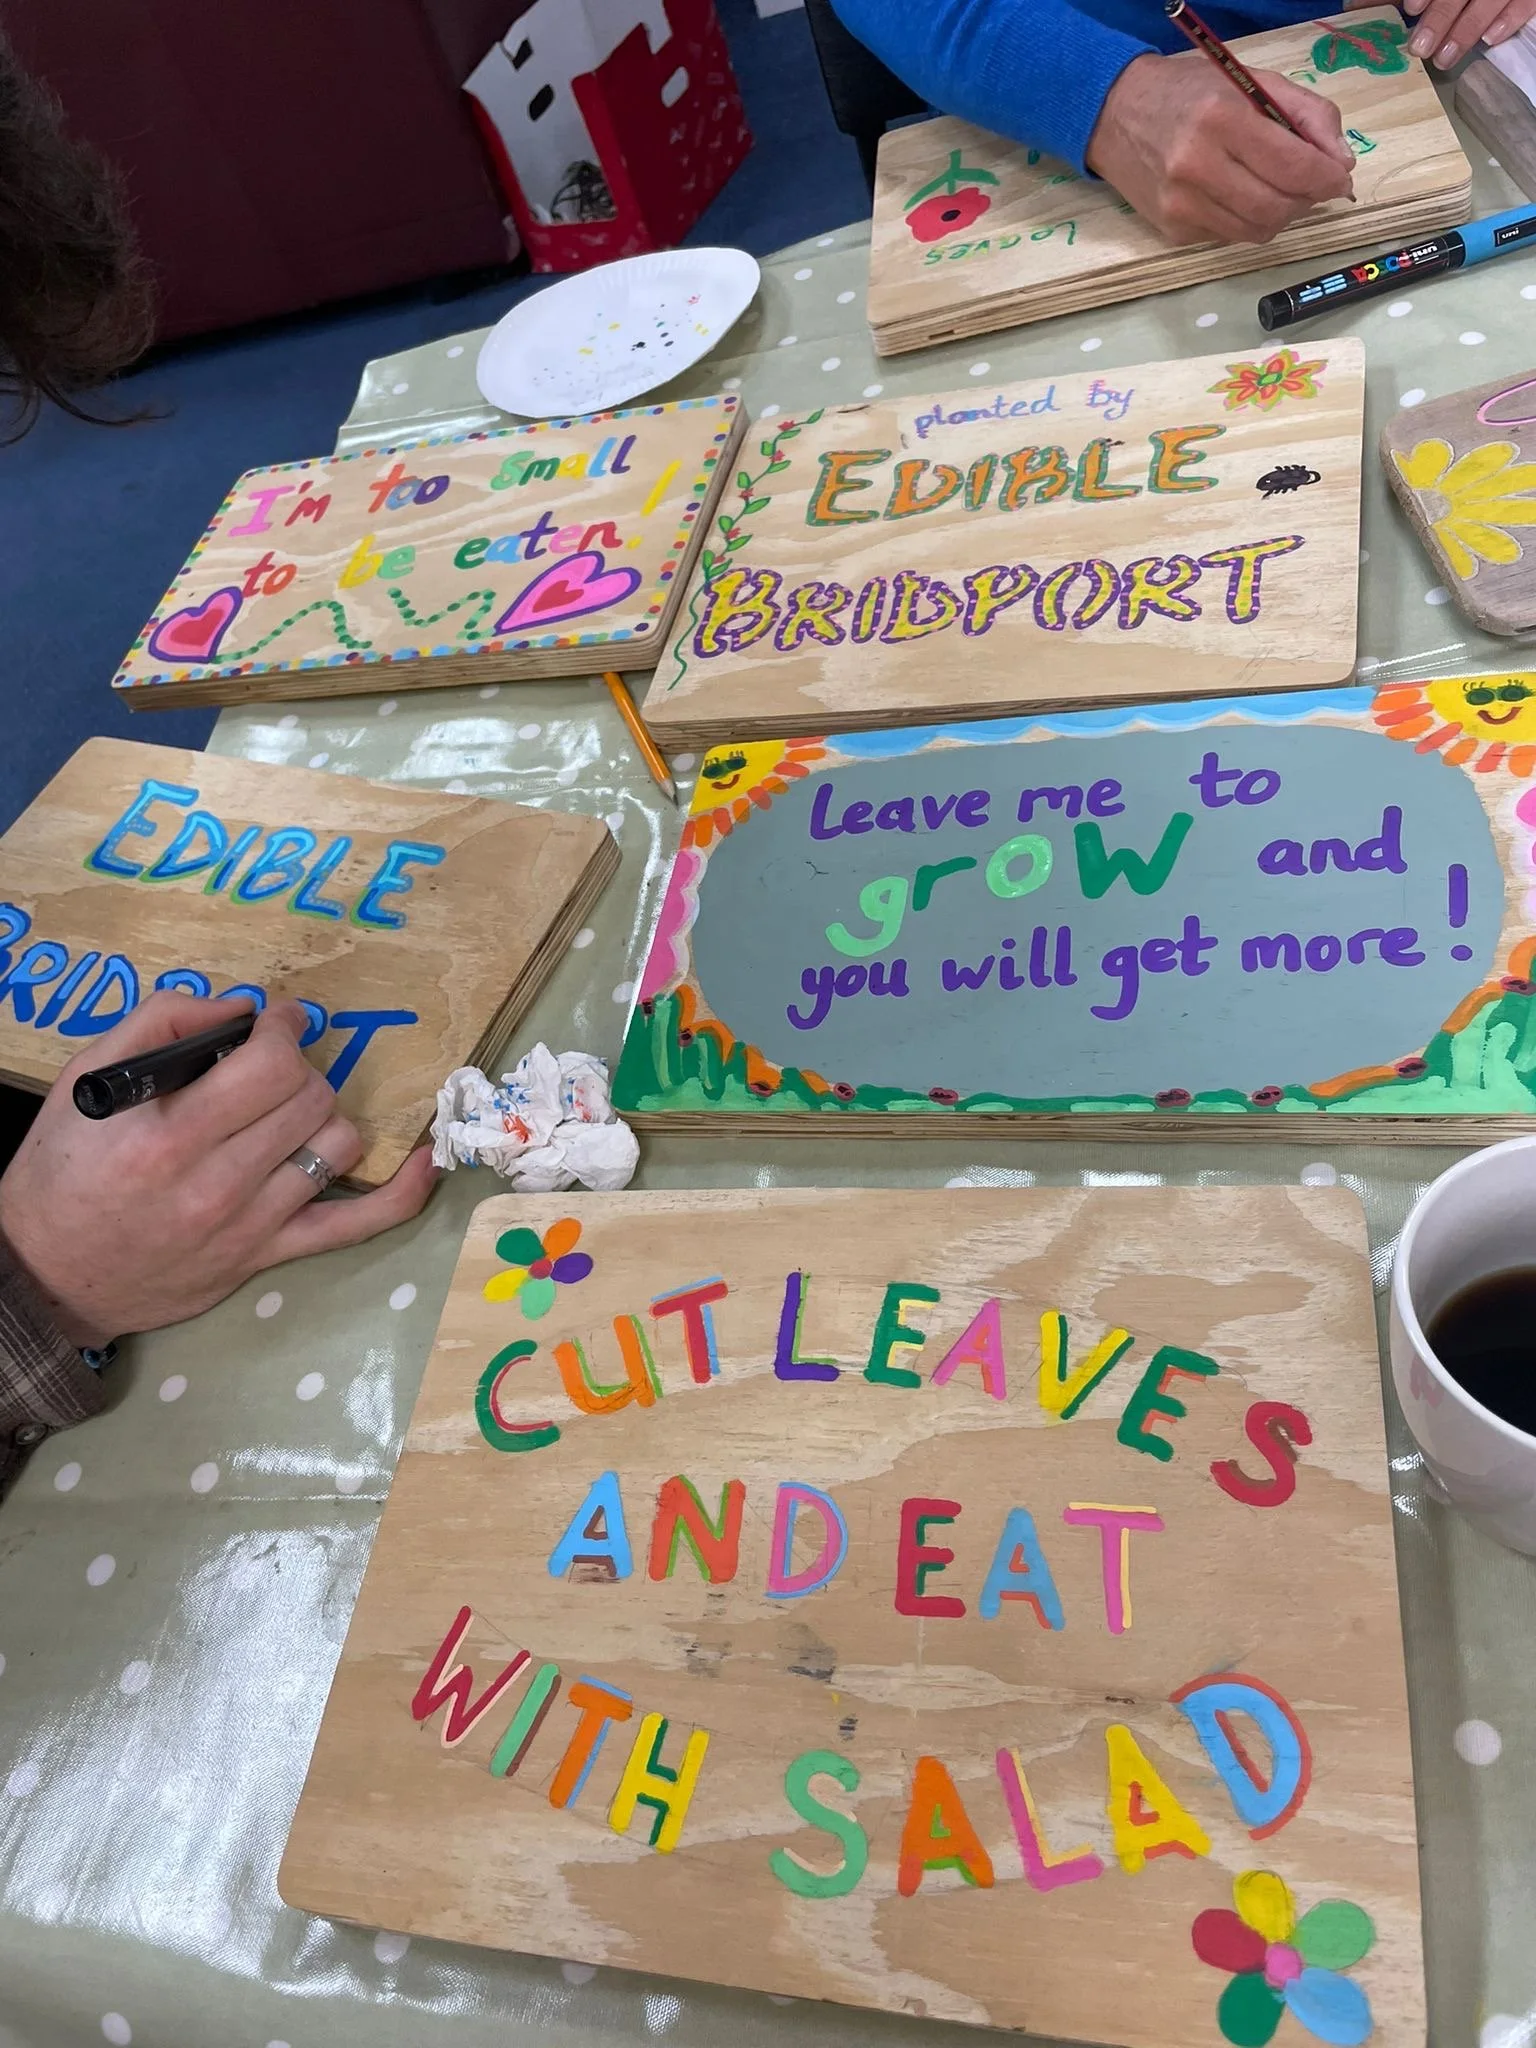 leaves
uni POSCA
planted by
EDIBLE
BRIDPORT
I'm too small
to be eaten!
Leave me to
grow and
you will get more!
EDIBLE
BRIDPORT
CUT LEAVES
AND EAT
WITH SALAD